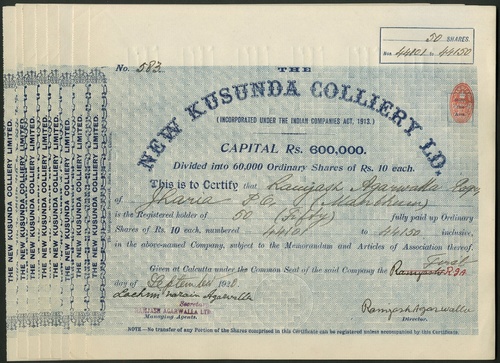 50 SHARES.
Nos. 44101 to 44150
No. 582
THE
NEW KUSUNDA COLLIERY LD.
(INCORPORATED UNDER THE INDIAN COMPANIES ACT, 1913.)
CAPITAL Rs. 600,000.
Divided into 60,000 Ordinary Shares of Rs. 10 each.
This is to Certify that Ramjash Agarwalla Esqr
of Jharia P.O. (Manbhum)
is the Registered holder of 50 (Fifty) fully paid up Ordinary
Shares of Rs. 10 each, numbered 44101 to 44150 inclusive,
in the above-named Company, subject to the Memorandum and Articles of Association thereof.
Given at Calcutta under the Common Seal of the said Company the First
day of September 1920
Lachmi Narain Agarwalla
Secretary
RAMJASH AGARWALLA LTD
Managing Agents.
Ramjash Agarwalla
Director.
NOTE—No transfer of any Portion of the Shares comprised in this Certificate can be registered unless accompanied by this Certificate.
THE NEW KUSUNDA COLLIERY LIMITED.
THE NEW KUSUNDA COLLIERY LIMITED.
THE NEW KUSUNDA COLLIERY LIMITED.
THE NEW KUSUNDA COLLIERY LIMITED.
THE NEW KUSUNDA COLLIERY LIMITED.
THE NEW KUSUNDA COLLIERY LIMITED.